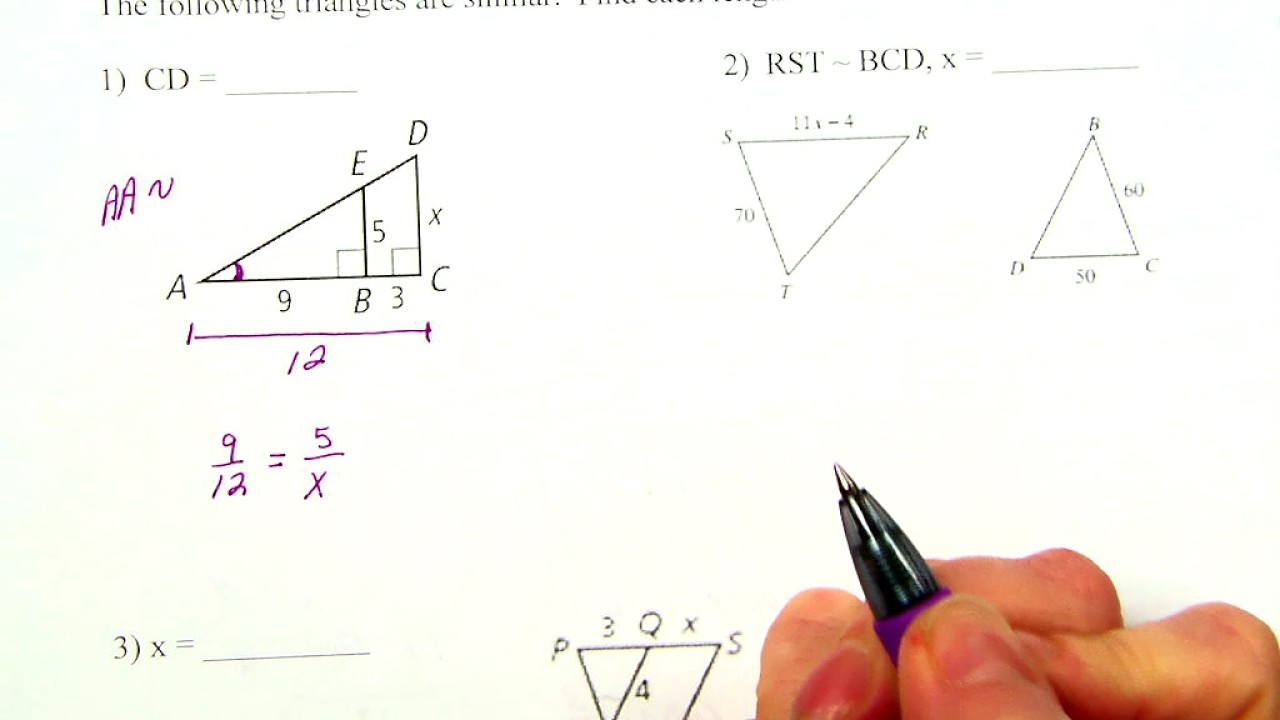 The following triangles are similar. Find each
1) CD =
2) RST ~ BCD, x =
D
E
AA ~
5
x
A
9
B
3
C
12
9/12 = 5/x
S
11x – 4
R
70
T
B
60
D
50
C
3) x =
P
3
Q
x
S
4